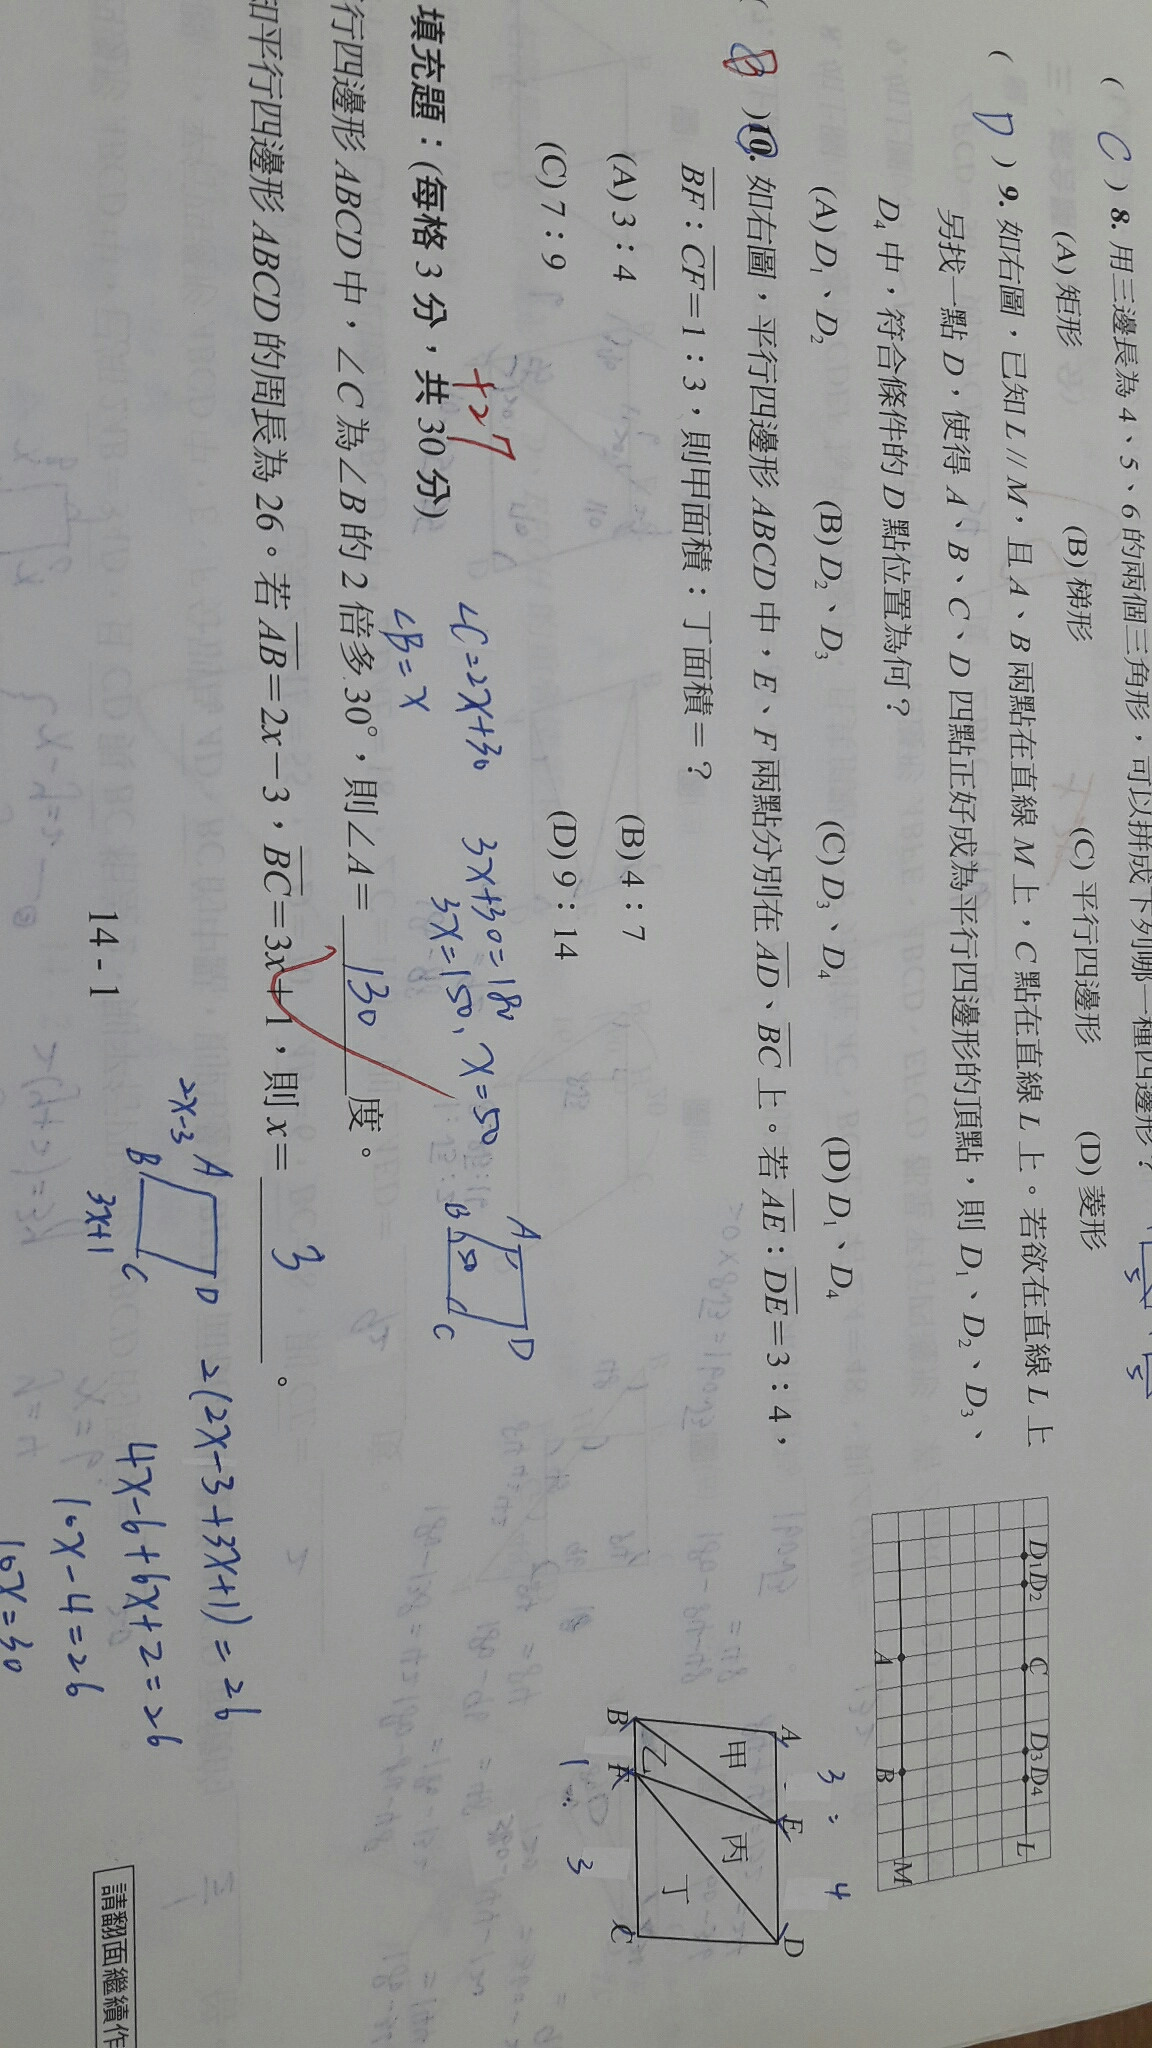 ( C ) 8. 用三邊長為 4、5、6 的兩個三角形，可以拼成下列哪一種四邊形？
(A) 矩形 (B) 梯形 (C) 平行四邊形 (D) 菱形
5 5
( D ) 9. 如右圖，已知 L // M，且 A、B 兩點在直線 M 上，C 點在直線 L 上。若欲在直線 L 上
另找一點 D，使得 A、B、C、D 四點正好成為平行四邊形的頂點，則 D₁、D₂、D₃、
D₄ 中，符合條件的 D 點位置為何？
(A) D₁、D₂ (B) D₂、D₃ (C) D₃、D₄ (D) D₁、D₄
D₁ D₂ C D₃ D₄ L
A B M
)10. 如右圖，平行四邊形 ABCD 中，E、F 兩點分別在 AD、BC 上。若 AE：DE＝3：4，
BF：CF＝1：3，則甲面積：丁面積＝？
(A) 3：4 (B) 4：7
(C) 7：9 (D) 9：14
3 : 4
A E D
甲 乙 丙 丁
B F C
1 : 3
填充題：(每格 3 分，共 30 分)
+27
∠C=2x+30 3x+30=180
∠B=x 3x=150, x=50
A D
B 50 C
行四邊形 ABCD 中，∠C 為∠B 的 2 倍多 30°，則∠A＝ 130 度。
平行四邊形 ABCD 的周長為 26。若 AB＝2x－3，BC＝3x＋1，則 x＝ 3 。
A D
2x-3
B C
3x+1
2(2x-3+3x+1)=26
4x-6+6x+2=26
10x-4=26
10x=30
14 - 1
請翻面繼續作